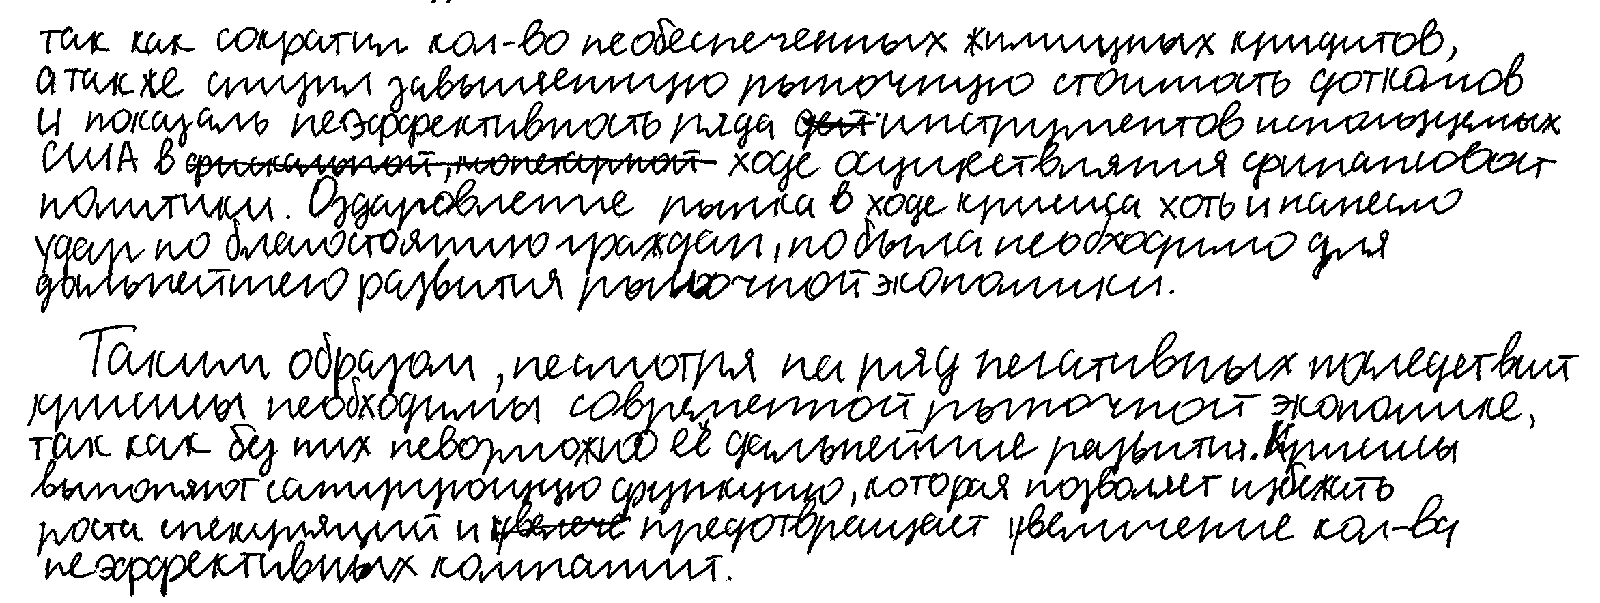 так как сократил кол-во необеспеченных жилищных кридитов,
а также снизил завышенную рыночную стоимость доткомов
и показаль неэффективность ряда инструментов используемых
США в фискальной, монетарной ходе осуществления финансовой
политики. Оздаровление рынка в ходе кризиса хоть и нанесло
удар по благостоянию граждан, но была необходимо для
дальнейшего развития рыночной экономики.
Таким образом, несмотря на ряд негативных последствий
кризисы необходимы современной рыночной экономике,
так как без них невозможно её дальнейшие развития. Кризисы
выполняют санирующую функцию, которая позволяет избежать
роста спекуляций и увелече предотвращает увеличение кол-ва
неэффективных компаний.